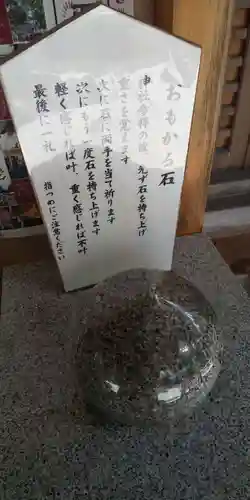 おもかる石
神社参拝の後、先ず石を持ち上げ
重さを覚えます
次に石に両手を当て祈ります
次にもう一度石を持ち上げます
軽く感じれば叶、重く感じれば不叶
最後に一礼
指つめにご注意ください